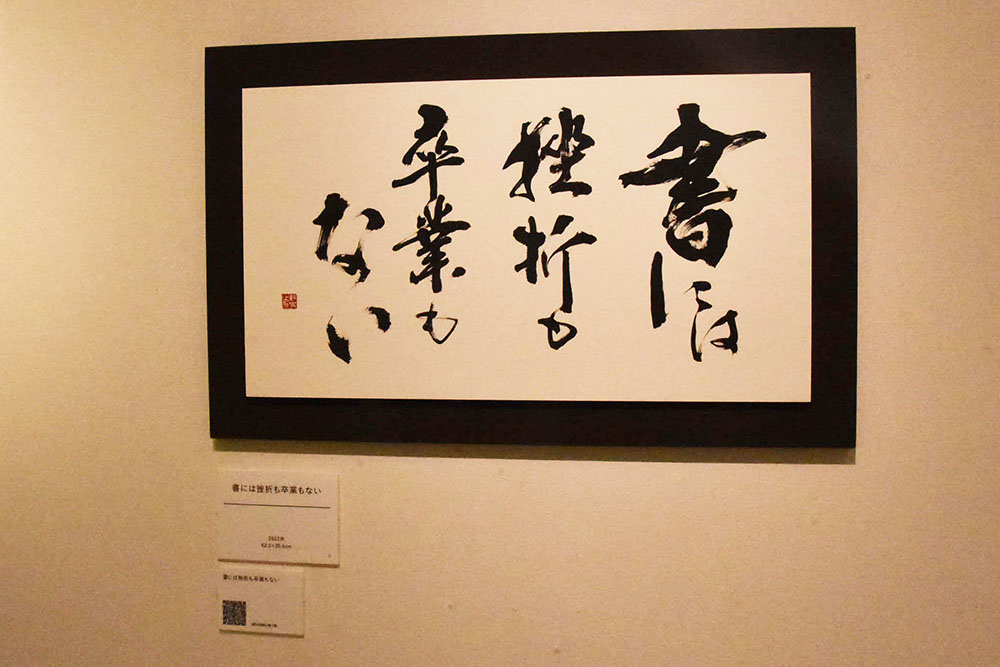 書には
挫折も
卒業も
ない
書には挫折も卒業もない
2022年
62.5×35.0cm
書には挫折も卒業もない